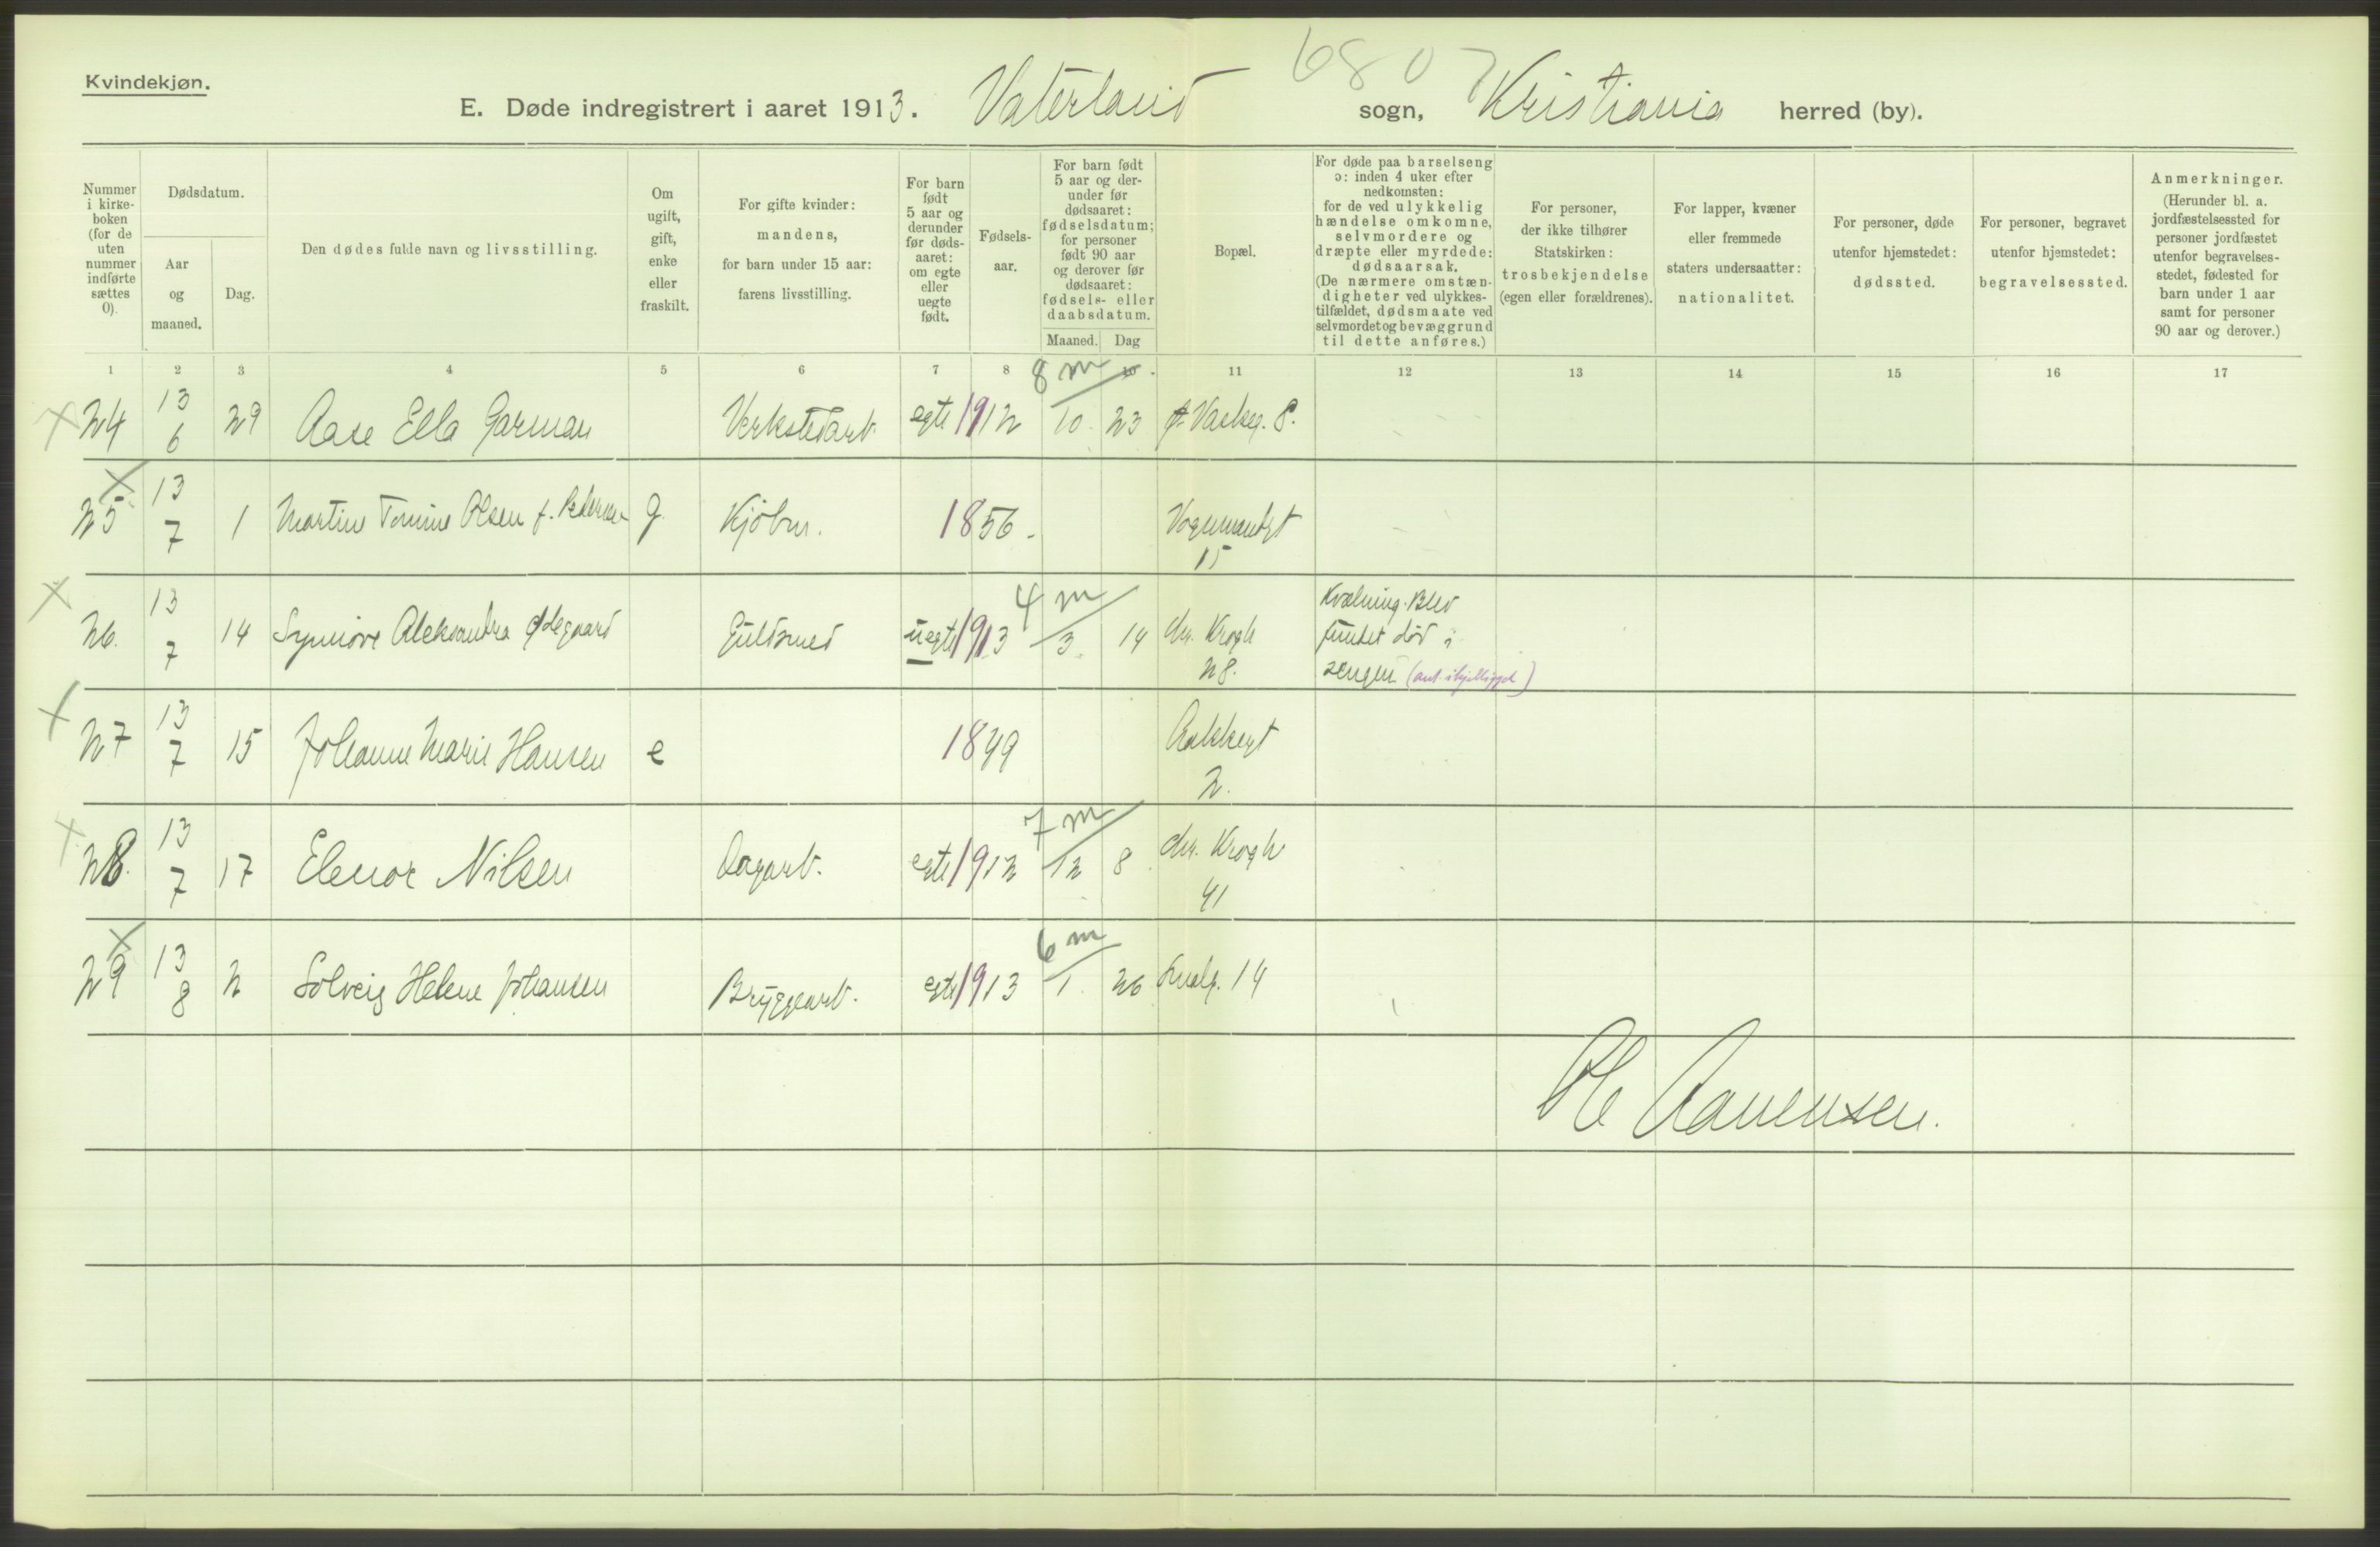 Kvindekjøn.
6807
E. Døde indregistrert i aaret 1913. Vaterland sogn, Kristiania herred (by).
Nummer i kirke-boken (for de uten nummer indførte sættes 0).
Dødsdatum.
Aar og maaned.
Dag.
Den dødes fulde navn og livsstilling.
Om ugift, gift, enke eller fraskilt.
For gifte kvinder: mandens, for barn under 15 aar: farens livsstilling.
For barn født 5 aar og derunder før døds-aaret: om egte eller uegte født.
Fødsels-aar.
For barn født 5 aar og der-under før dødsaaret: fødselsdatum; for personer født 90 aar og derover før dødsaaret: fødsels- eller daabsdatum.
Maaned. Dag
Bopæl.
For døde paa barselseng ɔ: inden 4 uker efter nedkomsten: for de ved ulykkelig hændelse omkomne, selvmordere og dræpte eller myrdede: dødsaarsak. (De nærmere omstæn-digheter ved ulykkes-tilfældet, dødsmaate ved selvmordet og bevæggrund til dette anføres.)
For personer, der ikke tilhører Statskirken: trosbekjendelse (egen eller forældrenes).
For lapper, kvæner eller fremmede staters undersaatter: nationalitet.
For personer, døde utenfor hjemstedet: dødssted.
For personer, begravet utenfor hjemstedet: begravelsessted.
Anmerkninger. (Herunder bl. a. jordfæstelsessted for personer jordfæstet utenfor begravelses-stedet, fødested for barn under 1 aar samt for personer 90 aar og derover.)
1 2 3 4 5 6 7 8 10 11 12 13 14 15 16 17
24 13/6 29 Aase Ella Garman Verkstedarb. egte 1912 8 m 10. 23 8.
25 13/7 1 Martine Tomine Olsen f. Pedersen g. Kjøbm. 1856. Vognmandsgt 15
26. 13/7 14 Synnøve Aleksandra Ødegaard Guldsmed uegte 1913 4 m 3. 14 Chr. Krogh 28. Kvælning. Blev fundet død i sengen (ant. ihjelligget)
27 13/7 15 Johanne Marie Hansen e 1849 Rakkergt 2.
28. 13/7 17 Elenor Nilsen Dagarb. egte 1912 7 m 12 8 Chr. Krogh 41
29 13/8 2 Solveig Helene Johansen Bryggearb. egte 1913 6 m 1. 26 14